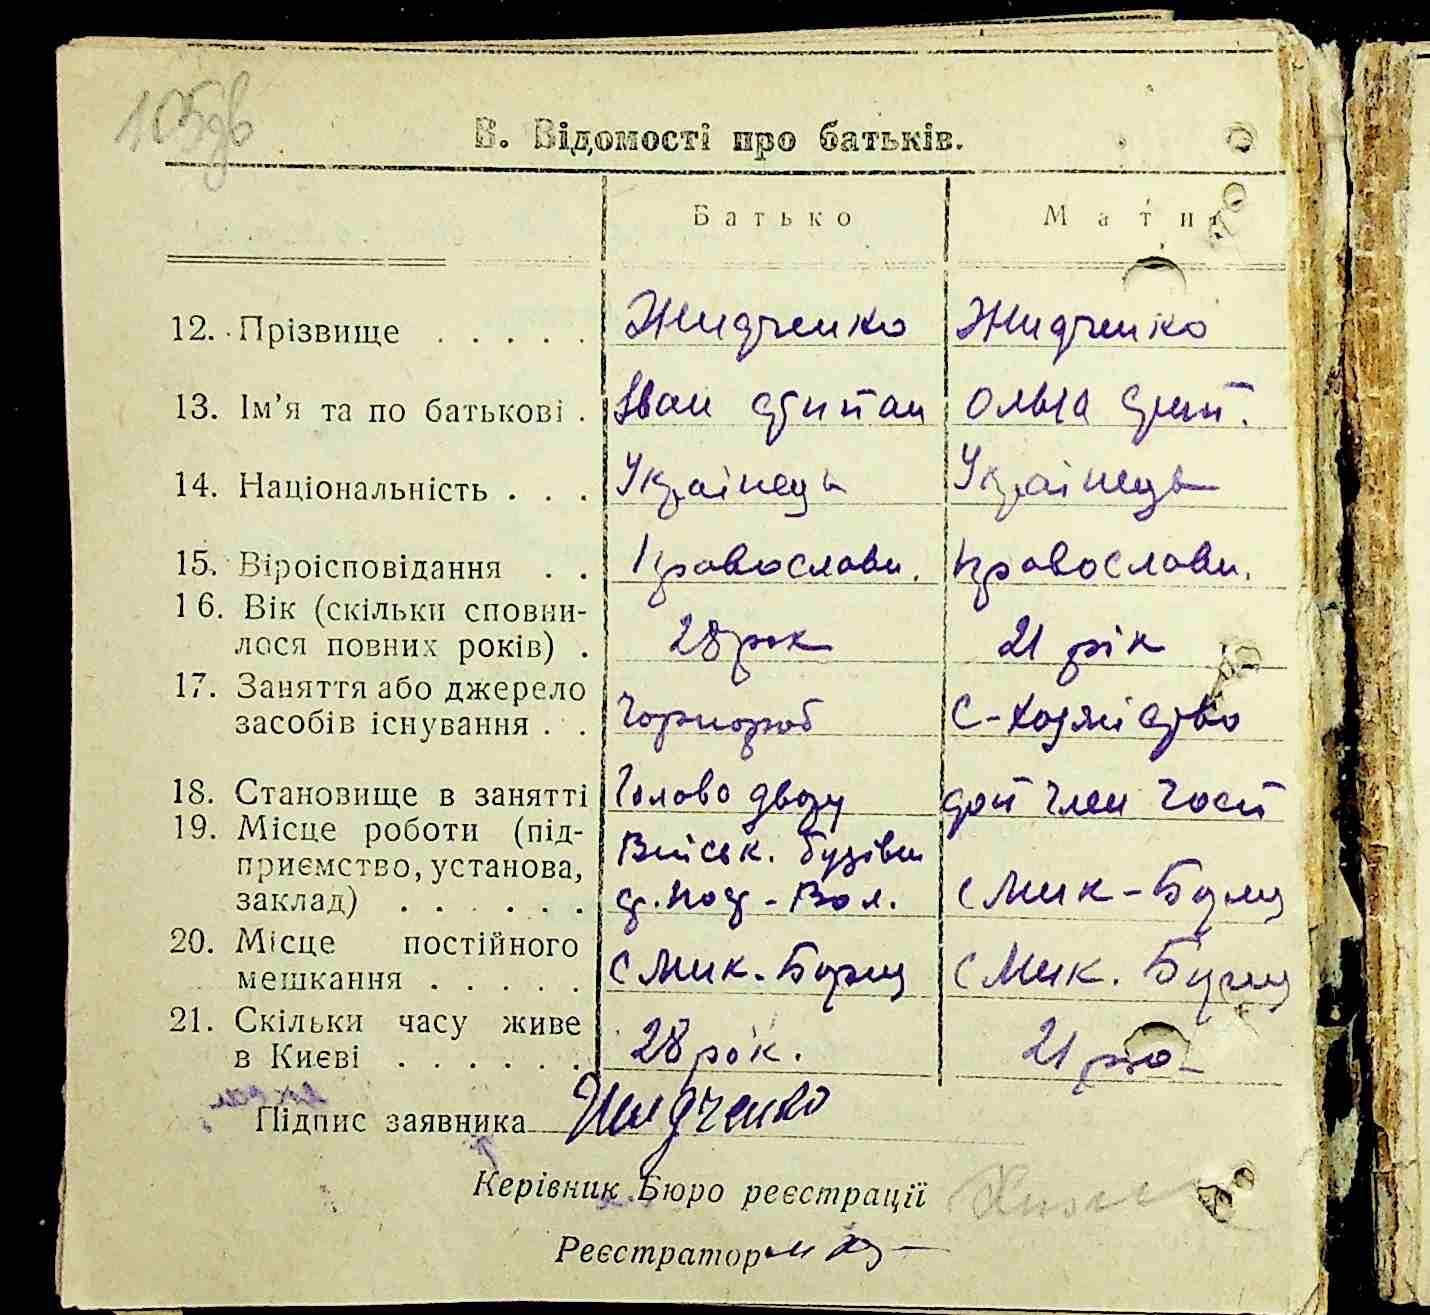 В. Відомості про батьків.
Батько Мати
12. Прізвище . . . . . Жидченко Жидченко
13. Ім’я та по батькові . Іван Степан Ольга
14. Національність . . . Українець Українець
15. Віроісповідання . . Православн. Православн.
16. Вік (скільки сповни-
лося повних років) . 28 рок 21 рік
17. Заняття або джерело
засобів існування . . Чорнороб С-Хозяйство
18. Становище в занятті Голова двору доп член госп
19. Місце роботи (під-
приємство, установа, Військ. будівн
заклад) . . . . . . с Мик-Борщ
20. Місце постійного
мешкання . . . . . с Мик. Борщ с Мик. Борщ
21. Скільки часу живе
в Києві . . . . . . 28 рок. 21
Підпис заявника Жидченко
Керівник Бюро реєстрації
Реєстратор